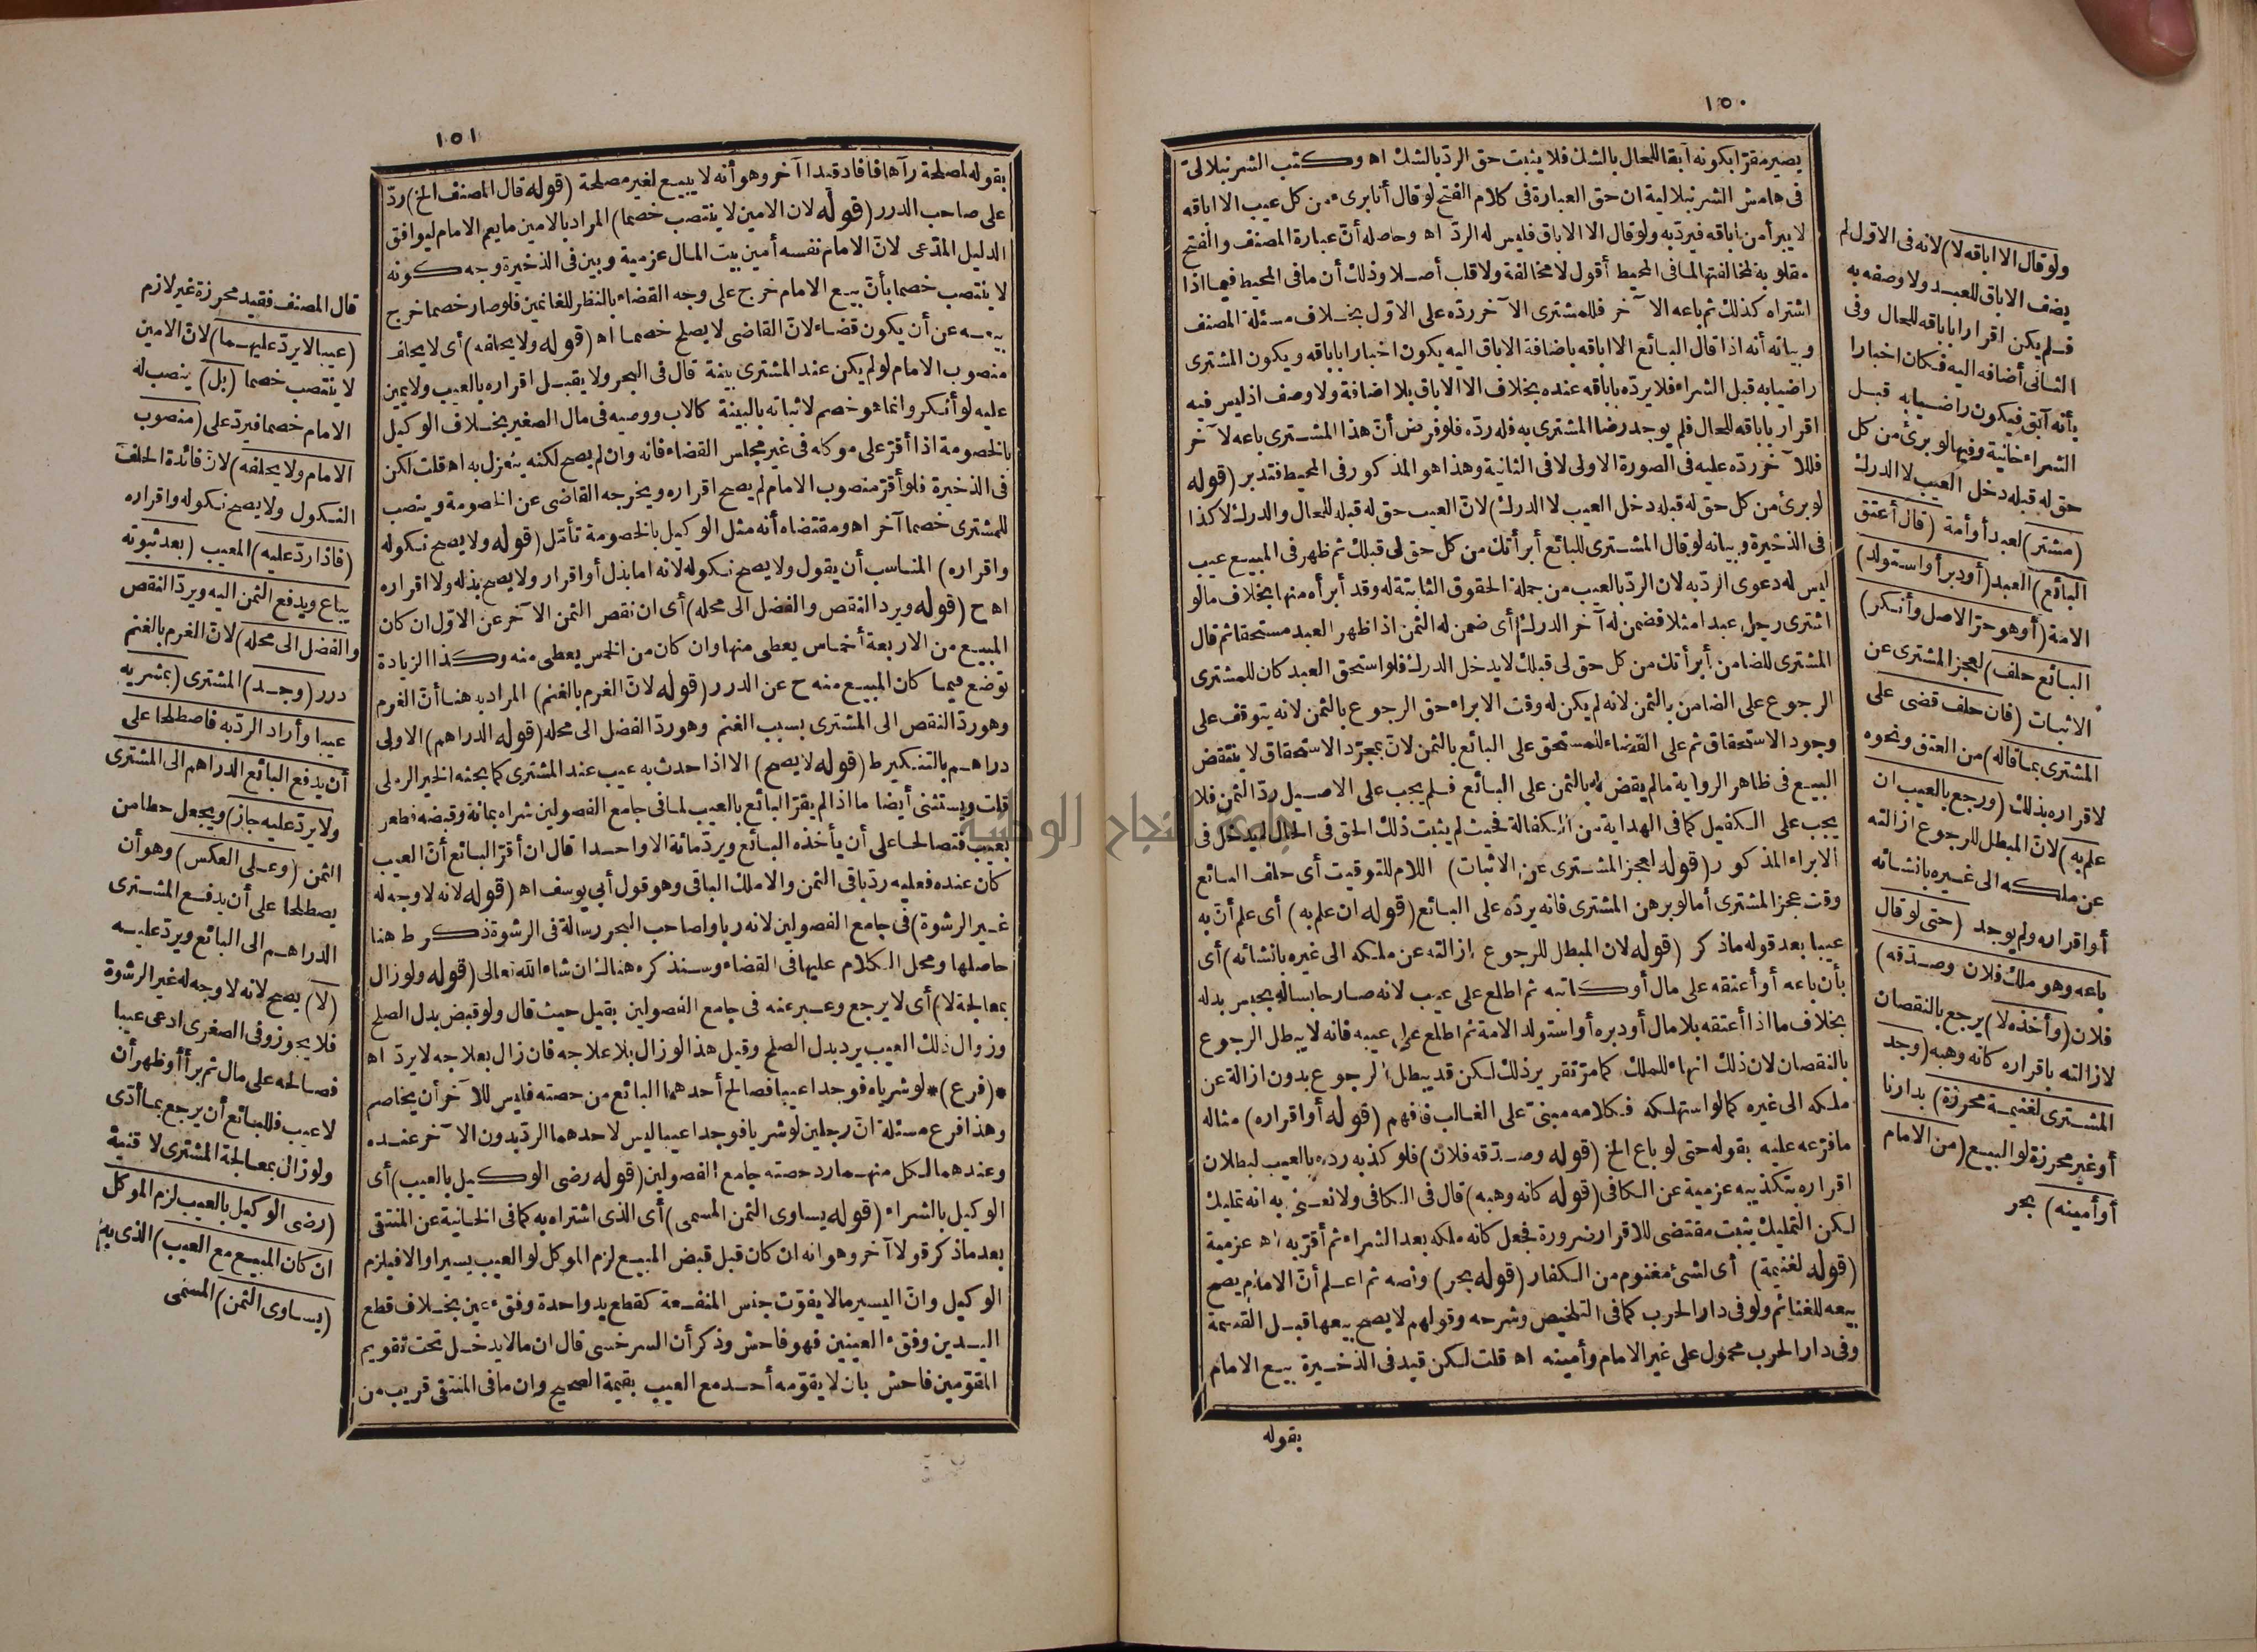 ١٥٠
يصير مقرّا بكونه آبقا للحال بالشك فلا يثبت حق الردّ بالشك اه وكتب الشرنبلالىّ
فى هامش الشرنبلالية ان حق العبارة فى كلام الفتح لو قال أنا برىء من كل عيب الا اباقه
لا يبرأ من اباقه فيردّ به ولو قال الا الاباق فليس له الردّ اه وحاصله أنّ عبارة المصنف والفتح
مقلوبة لمخالفتها لما فى المحيط أقول لا مخالفة ولا قلب أصلا وذلك أن ما فى المحيط فيما اذا
اشتراه كذلك ثم باعه الآخر فللمشترى الآخر ردّه على الاوّل بخلاف مسئلة المصنف
وبيانه أنه اذا قال البائع الا اباقه باضافة الاباق اليه يكون اخبارا باباقه ويكون المشترى
راضيا به قبل الشراء فلا يردّه باباقه عنده بخلاف الا الاباق بلا اضافة ولا وصف اذ ليس فيه
اقرار باباقه للحال فلم يوجد رضا المشترى به فله ردّه فلو فرض أنّ هذا المشترى باعه لآخر
فللآخر ردّه عليه فى الصورة الاولى لا فى الثانية وهذا هو المذكور فى المحيط فتدبر (قوله
لو برئ من كل حق له قبله دخل العيب لا الدرك) لانّ العيب حق له قبله للحال والدرك لا كذا
فى الذخيرة وبيانه لو قال المشترى للبائع أبرأتك من كل حق لى قبلك ثم ظهر فى المبيع عيب
ليس له دعوى الردّ به لان الردّ بالعيب من جملة الحقوق الثابتة له وقد أبرأه منها بخلاف ما لو
اشترى رجل عبدا مثلا فضمن له آخر الدرك أى ضمن له الثمن اذا ظهر العبد مستحقا ثم قال
المشترى للضامن أبرأتك من كل حق لى قبلك لا يدخل الدرك فلو استحق العبد كان للمشترى
الرجوع على الضامن بالثمن لانه لم يكن له وقت الابراء حق الرجوع بالثمن لانه يتوقف على
وجود الاستحقاق ثم على القضاء للمستحق على البائع بالثمن لانّ بمجرّد الاستحقاق لا ينتقض
البيع فى ظاهر الرواية ما لم يقض له بالثمن على البائع فلم يجب على الاصيل ردّ الثمن فلا
يجب على الكفيل كما فى الهداية من الكفالة فحيث لم يثبت ذلك الحق فى الحال لم يدخل فى
الابراء المذكور (قوله لعجز المشترى عن الاثبات) اللام للتوقيت أى حلف البائع
وقت عجز المشترى أما لو برهن المشترى فانه يردّه على البائع (قوله ان علم به) أى علم أنّ به
عيبا بعد قوله ما ذكر (قوله لان المبطل للرجوع ازالته عن ملكه الى غيره بانشائه) أى
بأن باعه أو أعتقه على مال أو كاتبه ثم اطلع على عيب لانه صار حابسا له بحبس بدله
بخلاف ما اذا أعتقه بلا مال أو دبره أو استولد الامة ثم اطلع على عيبه فانه لا يبطل الرجوع
بالنقصان لان ذلك انهاء للملك كما مرّ تقريره لكن قد يبطل الرجوع بدون ازالة عن
ملكه الى غيره كما لو استهلكه فكلامه مبنىّ على الغالب فافهم (قوله أو اقراره) مثاله
ما فرّعه عليه بقوله حتى لو باع الخ (قوله وصدّقه فلان) فلو كذبه ردّه بالعيب لبطلان
اقراره بتكذيبه عزمية عن الكافى (قوله كانه وهبه) قال فى الكافى ولا نعنى به انه تمليك
لكن التمليك يثبت مقتضى للاقرار ضرورة فجعل كانه ملكه بعد الشراء ثم أقرّ به اه عزمية
(قوله لغنيمة) أى لشئ مغنوم من الكفار (قوله بحر) ونصه ثم اعلم أنّ الامام يصح
بيعه للغنائم ولو فى دار الحرب كما فى التلخيص وشرحه وقولهم لا يصح بيعها قبل القسمة
وفى دار الحرب محمول على غير الامام وأمينه اه قلت لكن قيد فى الذخيرة بيع الامام
بقوله
ولو قال الا اباقه لا) لانه فى الاوّل لم
يضف الاباق للعبد ولا وصفه به
فلم يكن اقرارا باباقه للحال وفى
الثانى أضافه اليه فكان اخبارا
بأنه آبق فيكون راضيا به قبل
الشراء خانية وفيها لو برئ من كل
حق له قبله دخل العيب لا الدرك
(مشتر) لعبد أو أمة (قال أعتق
البائع) العبد (أو دبر أو استولد)
الامة (أو هو حرّ الاصل وأنكر)
البائع حلف) لعجز المشترى عن
الاثبات (فان حلف قضى على
المشترى بما قاله) من العتق ونحوه
لاقراره بذلك (ورجع بالعيب ان
علم به) لانّ المبطل للرجوع ازالته
عن ملكه الى غيره بانشائه
أو اقراره ولم يوجد (حتى لو قال
باعه وهو ملك فلان وصدّقه)
فلان (وأخذه لا) يرجع بالنقصان
لازالته باقراره كانه وهبه (وجد
المشترى لغنيمة محرزة) بدارنا
أو غير محرزة لو البيع (من الامام
أو أمينه) بحر
١٥١
بقوله لمصلحة رآها فافاد قيدا آخر وهو أنه لا يبيع لغير مصلحة (قوله قال المصنف الخ) ردّ
على صاحب الدرر (قوله لان الامين لا ينتصب خصما) المراد بالامين ما يعم الامام ليوافق
الدليل المدّعى لانّ الامام نفسه أمين بيت المال عزمية وبين فى الذخيرة وجه كونه
لا ينتصب خصما بأنّ بيع الامام خرج على وجه القضاء بالنظر للغانمين فلو صار خصما خرج
بيعه عن أن يكون قضاء لانّ القاضى لا يصلح خصما اه (قوله ولا يحلفه) أى لا يحلف
منصوب الامام لو لم يكن عند المشترى بينة قال فى البحر ولا يقبل اقراره بالعيب ولا يمين
عليه لو أنكر وانما هو خصم لاثباته بالبينة كالاب ووصيه فى مال الصغير بخلاف الوكيل
بالخصومة اذا أقرّ على موكله فى غير مجلس القضاء فانه وان لم يصح لكنه ينعزل به اه قلت لكن
فى الذخيرة فلو أقرّ منصوب الامام لم يصح اقراره ويخرجه القاضى عن الخصومة وينصب
للمشترى خصما آخر اه ومقتضاه أنه مثل الوكيل بالخصومة تأمّل (قوله ولا يصح نكوله
واقراره) المناسب أن يقول ولا يصح نكوله لانه اما بذل أو اقرار ولا يصح بذله ولا اقراره
اه ح (قوله ويرد النقص والفضل الى محله) أى ان نقص الثمن الآخر عن الاوّل ان كان
المبيع من الاربعة أخماس يعطى منها وان كان من الخمس يعطى منه وكذا الزيادة
توضع فيما كان المبيع منه ح عن الدرر (قوله لانّ الغرم بالغنم) المراد به هنا أنّ الغرم
وهو ردّ النقص الى المشترى بسبب الغنم وهو ردّ الفضل الى محله (قوله الدراهم) الاولى
دراهم بالتنكير ط (قوله لا يصح) الا اذا حدث به عيب عند المشترى كما بحثه الخير الرملى
قلت ويستثنى أيضا ما اذا لم يقرّ البائع بالعيب لما فى جامع الفصولين شراه بمائة وقبضه فطعن
بعيب فتصالحا على أن يأخذه البائع ويردّ مائة الا واحدا قال ان أقرّ البائع أنّ العيب
كان عنده فعليه ردّ باقى الثمن والا ملك الباقى وهو قول أبى يوسف اه (قوله لانه لا وجه له
غير الرشوة) فى جامع الفصولين لانه ربا ولصاحب البحر رسالة فى الرشوة ذكر ط هنا
حاصلها ومحل الكلام عليها فى القضاء وسنذكره هنالك ان شاء الله تعالى (قوله ولو زال
بمعالجة لا) أى لا يرجع وعبر عنه فى جامع الفصولين بقيل حيث قال ولو قبض بدل الصلح
وزوال ذلك العيب يرد بدل الصلح وقيل هذا لو زال بلا علاجه فان زال بعلاجه لا يردّ اه
*(فرع)* لو شرياه فوجدا عيبا فصالح أحدهما البائع من حصته فليس للآخر أن يخاصم
وهذا فرع مسئلة انّ رجلين لو شريا فوجدا عيبا ليس لاحدهما الردّ بدون الآخر عنده
وعندهما لكل منهما رد حصته جامع الفصولين (قوله رضى الوكيل بالعيب) أى
الوكيل بالشراء (قوله يساوى الثمن المسمى) أى الذى اشتراه به كما فى الخانية عن المنتقى
بعد ما ذكر قولا آخر وهو انه ان كان قبل قبض المبيع لزم الموكل لو العيب يسيرا والا فيلزم
الوكيل وانّ اليسير ما لا يفوّت جنس المنفعة كقطع يد واحدة وفقء عين بخلاف قطع
اليدين وفقء العينين فهو فاحش وذكر أن السرخسى قال ان ما لا يدخل تحت تقويم
المقوّمين فاحش بان لا يقوّمه أحد مع العيب بقيمة الصحيح وان ما فى المنتقى قريب من
قال المصنف فقيد محرزة غير لازم
(عيبا لا يردّ عليهما) لانّ الامين
لا ينتصب خصما (بل) ينصب له
الامام خصما فيردّ على (منصوب
الامام ولا يحلفه) لانّ فائدة الحلف
النكول ولا يصح نكوله واقراره
(فاذا ردّ عليه) المعيب (بعد ثبوته
يباع ويدفع الثمن اليه ويردّ النقص
والفضل الى محله) لانّ الغرم بالغنم
درر (وجد) المشترى (بمشريه
عيبا وأراد الردّ به فاصطلحا على
أن يدفع البائع الدراهم الى المشترى
ولا يردّ عليه جاز) ويجعل حطا من
الثمن (وعلى العكس) وهو أن
يصطلحا على أن يدفع المشترى
الدراهم الى البائع ويردّ عليه
(لا) يصح لانه لا وجه له غير الرشوة
فلا يجوز وفى الصغرى ادعى عيبا
فصالحه على مال ثم برأ أو ظهر أن
لا عيب فللبائع أن يرجع بما أدّى
ولو زال بمعالجة المشترى لا قنية
(رضى الوكيل بالعيب لزم الموكل
ان كان المبيع مع العيب) الذى به
(يساوى الثمن) المسمى
جامعة النجاح الوطنية